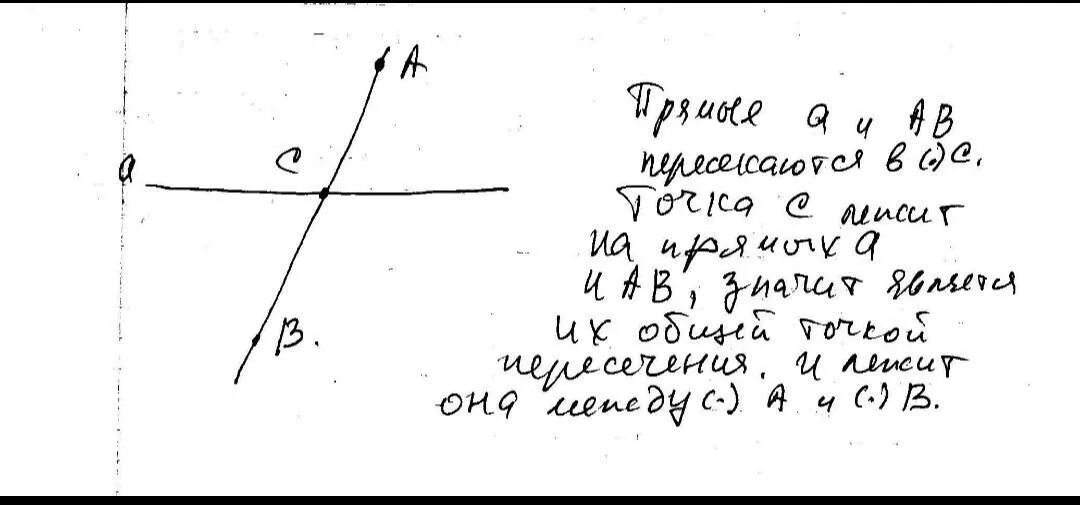 A
C
a
B.
Прямые a и AB
пересекаются в (·) C.
Точка C лежит
на прямых a
и AB, значит является
их общей точкой
пересечения. И лежит
она между (·) A и (·) B.